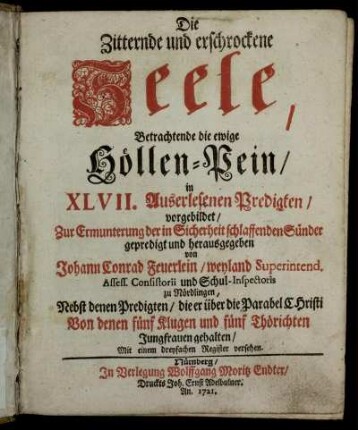 Die
Zitternde und erschrockene
Seele,
Betrachtende die ewige
Höllen-Pein/
in
XLVII. Auserlesenen Predigten/
vorgebildet/
Zur Ermunterung der in Sicherheit schlaffenden Sünder
gepredigt und herausgegeben
von
Johann Conrad Feuerlein/ weyland Superintend.
Assess. Consistorii und Schul-Inspectoris
zu Nördlingen,
Nebst denen Predigten/ die er über die Parabel CHristi
Von denen fünf Klugen und fünf Thörichten
Jungfrauen gehalten/
Mit einem dreyfachen Register versehen.
Nürnberg/
In Verlegung Wolffgang Moritz Endter/
Druckts Joh. Ernst Adelbulner.
An. 1721.